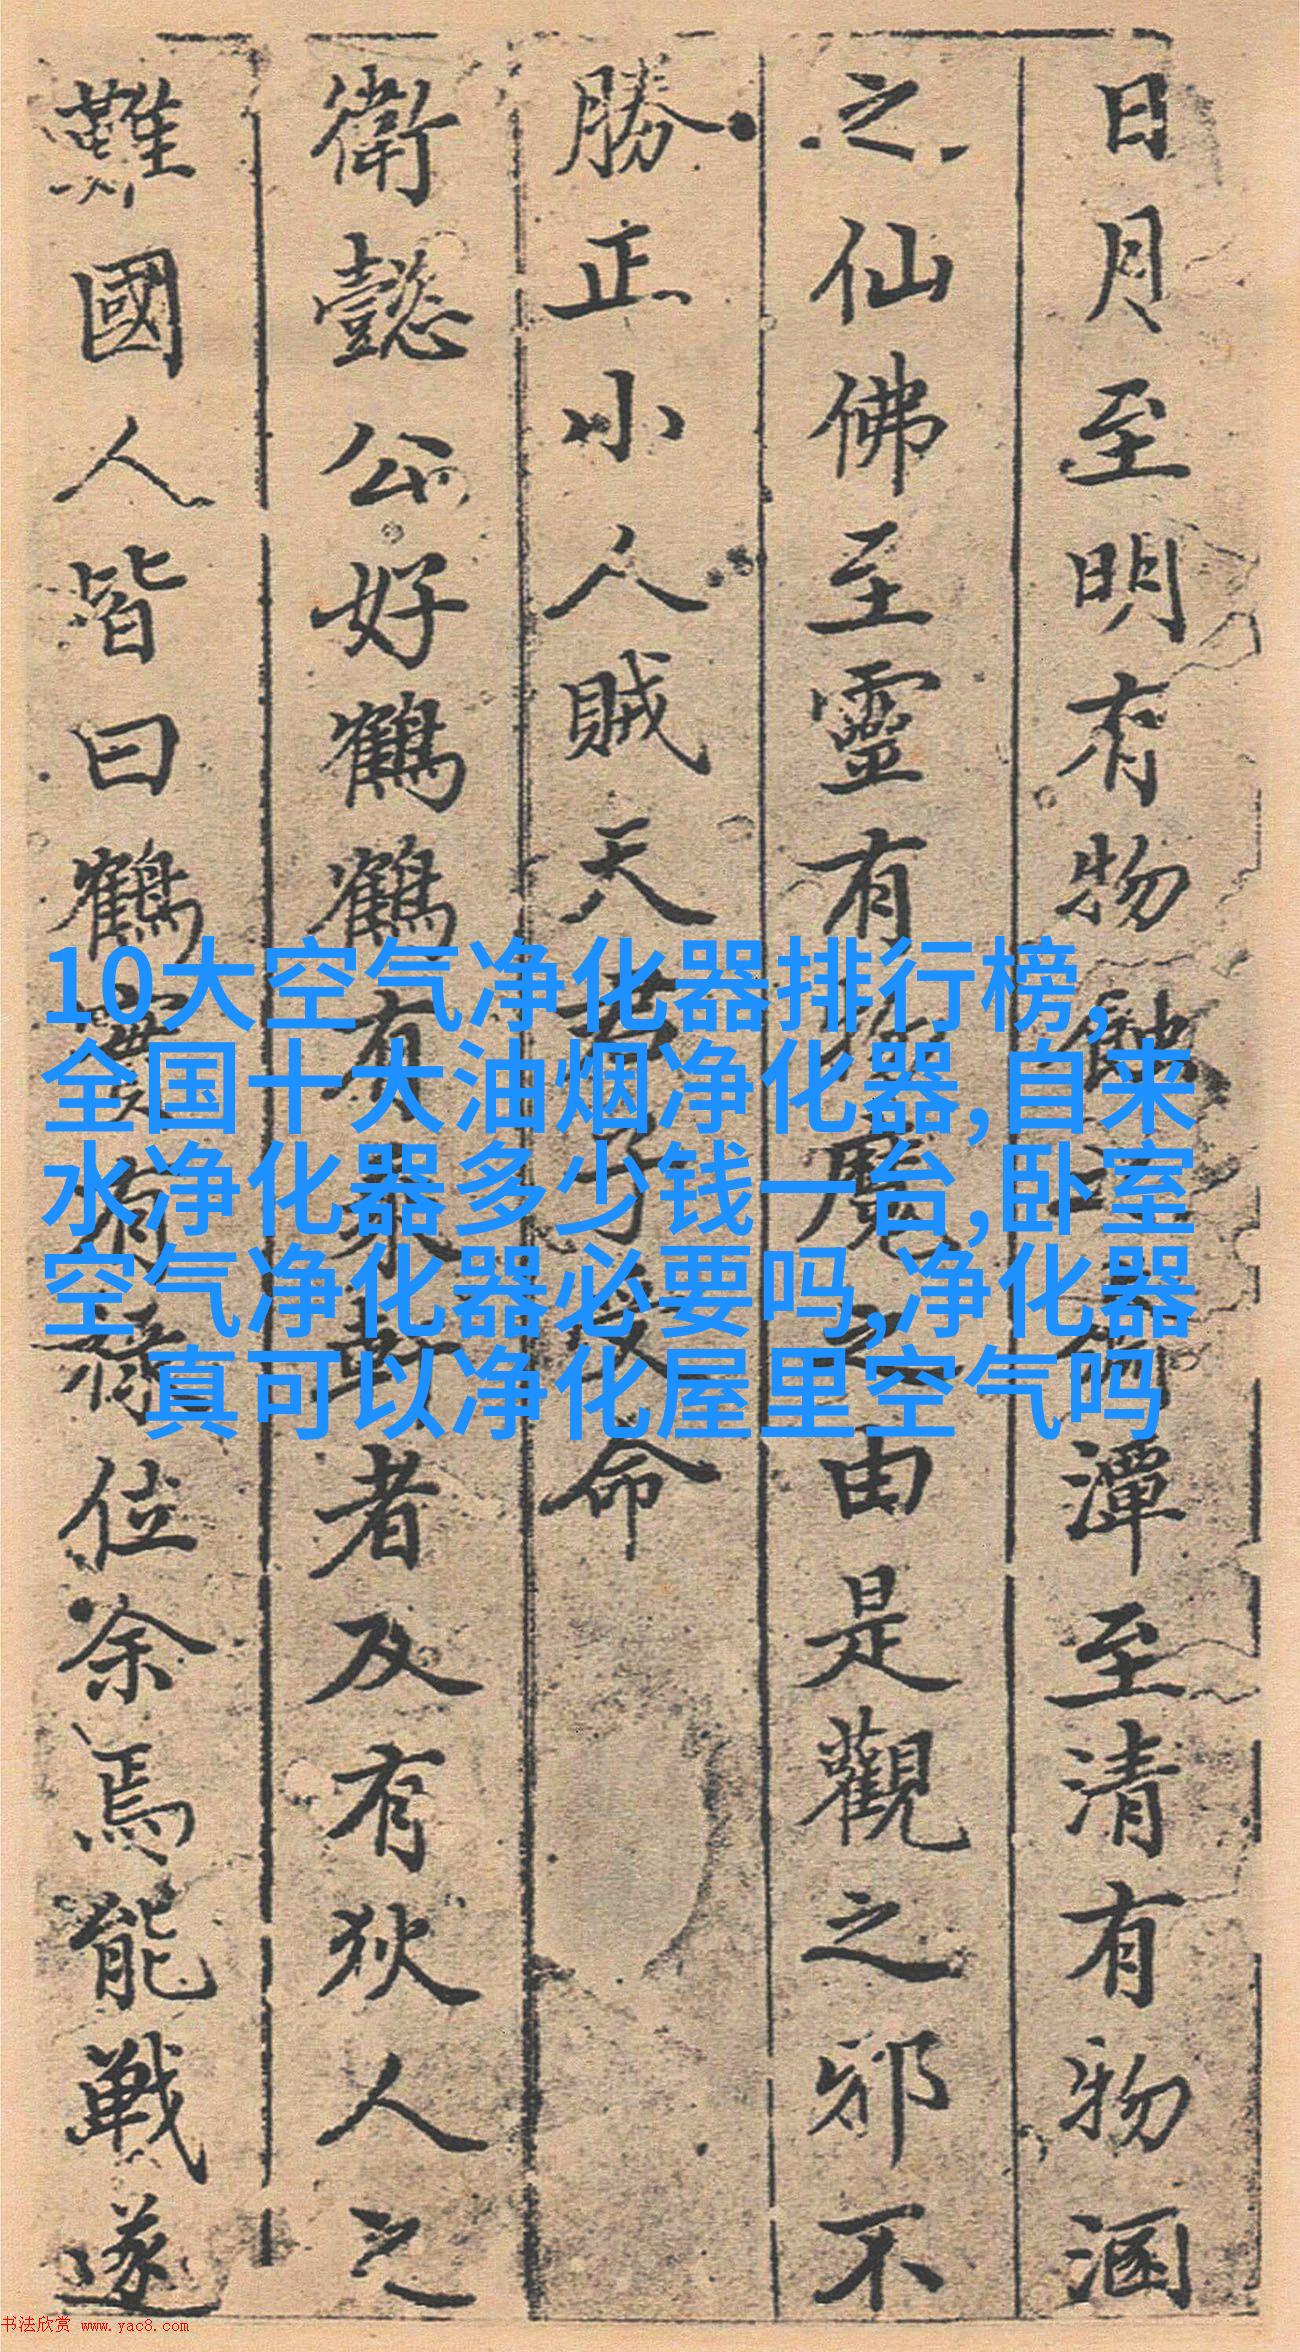 日月至明有物蝕之有潭至清有物涵
之仙佛至靈有招魔之由是觀之邪不
勝正小人賊天君子受命
衛懿公好鶴鶴有乘軒者及有狄人之
難國人皆曰鶴實有祿位余焉能戰遂
10大空气净化器排行榜,
全国十大油烟净化器,自来
水净化器多少钱一台,卧室
空气净化器必要吗,净化器
真可以净化屋里空气吗
书法欣赏 www.yac8.com